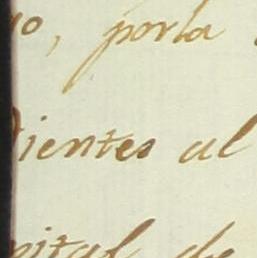 no, porla
dientes al
pital de